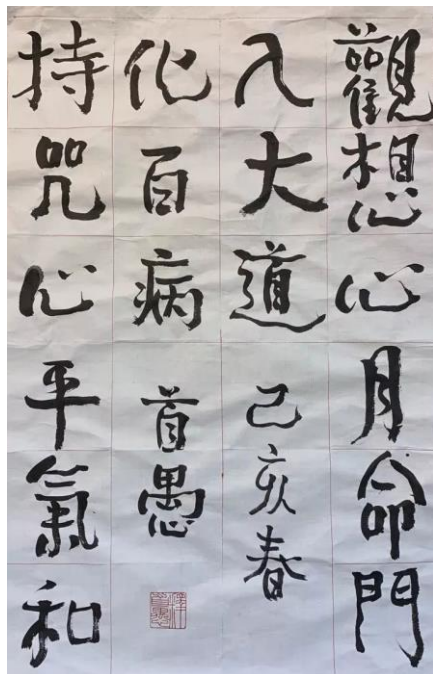 觀想心月命門
入大道 己亥春
化百病 首愚
持咒心平氣和